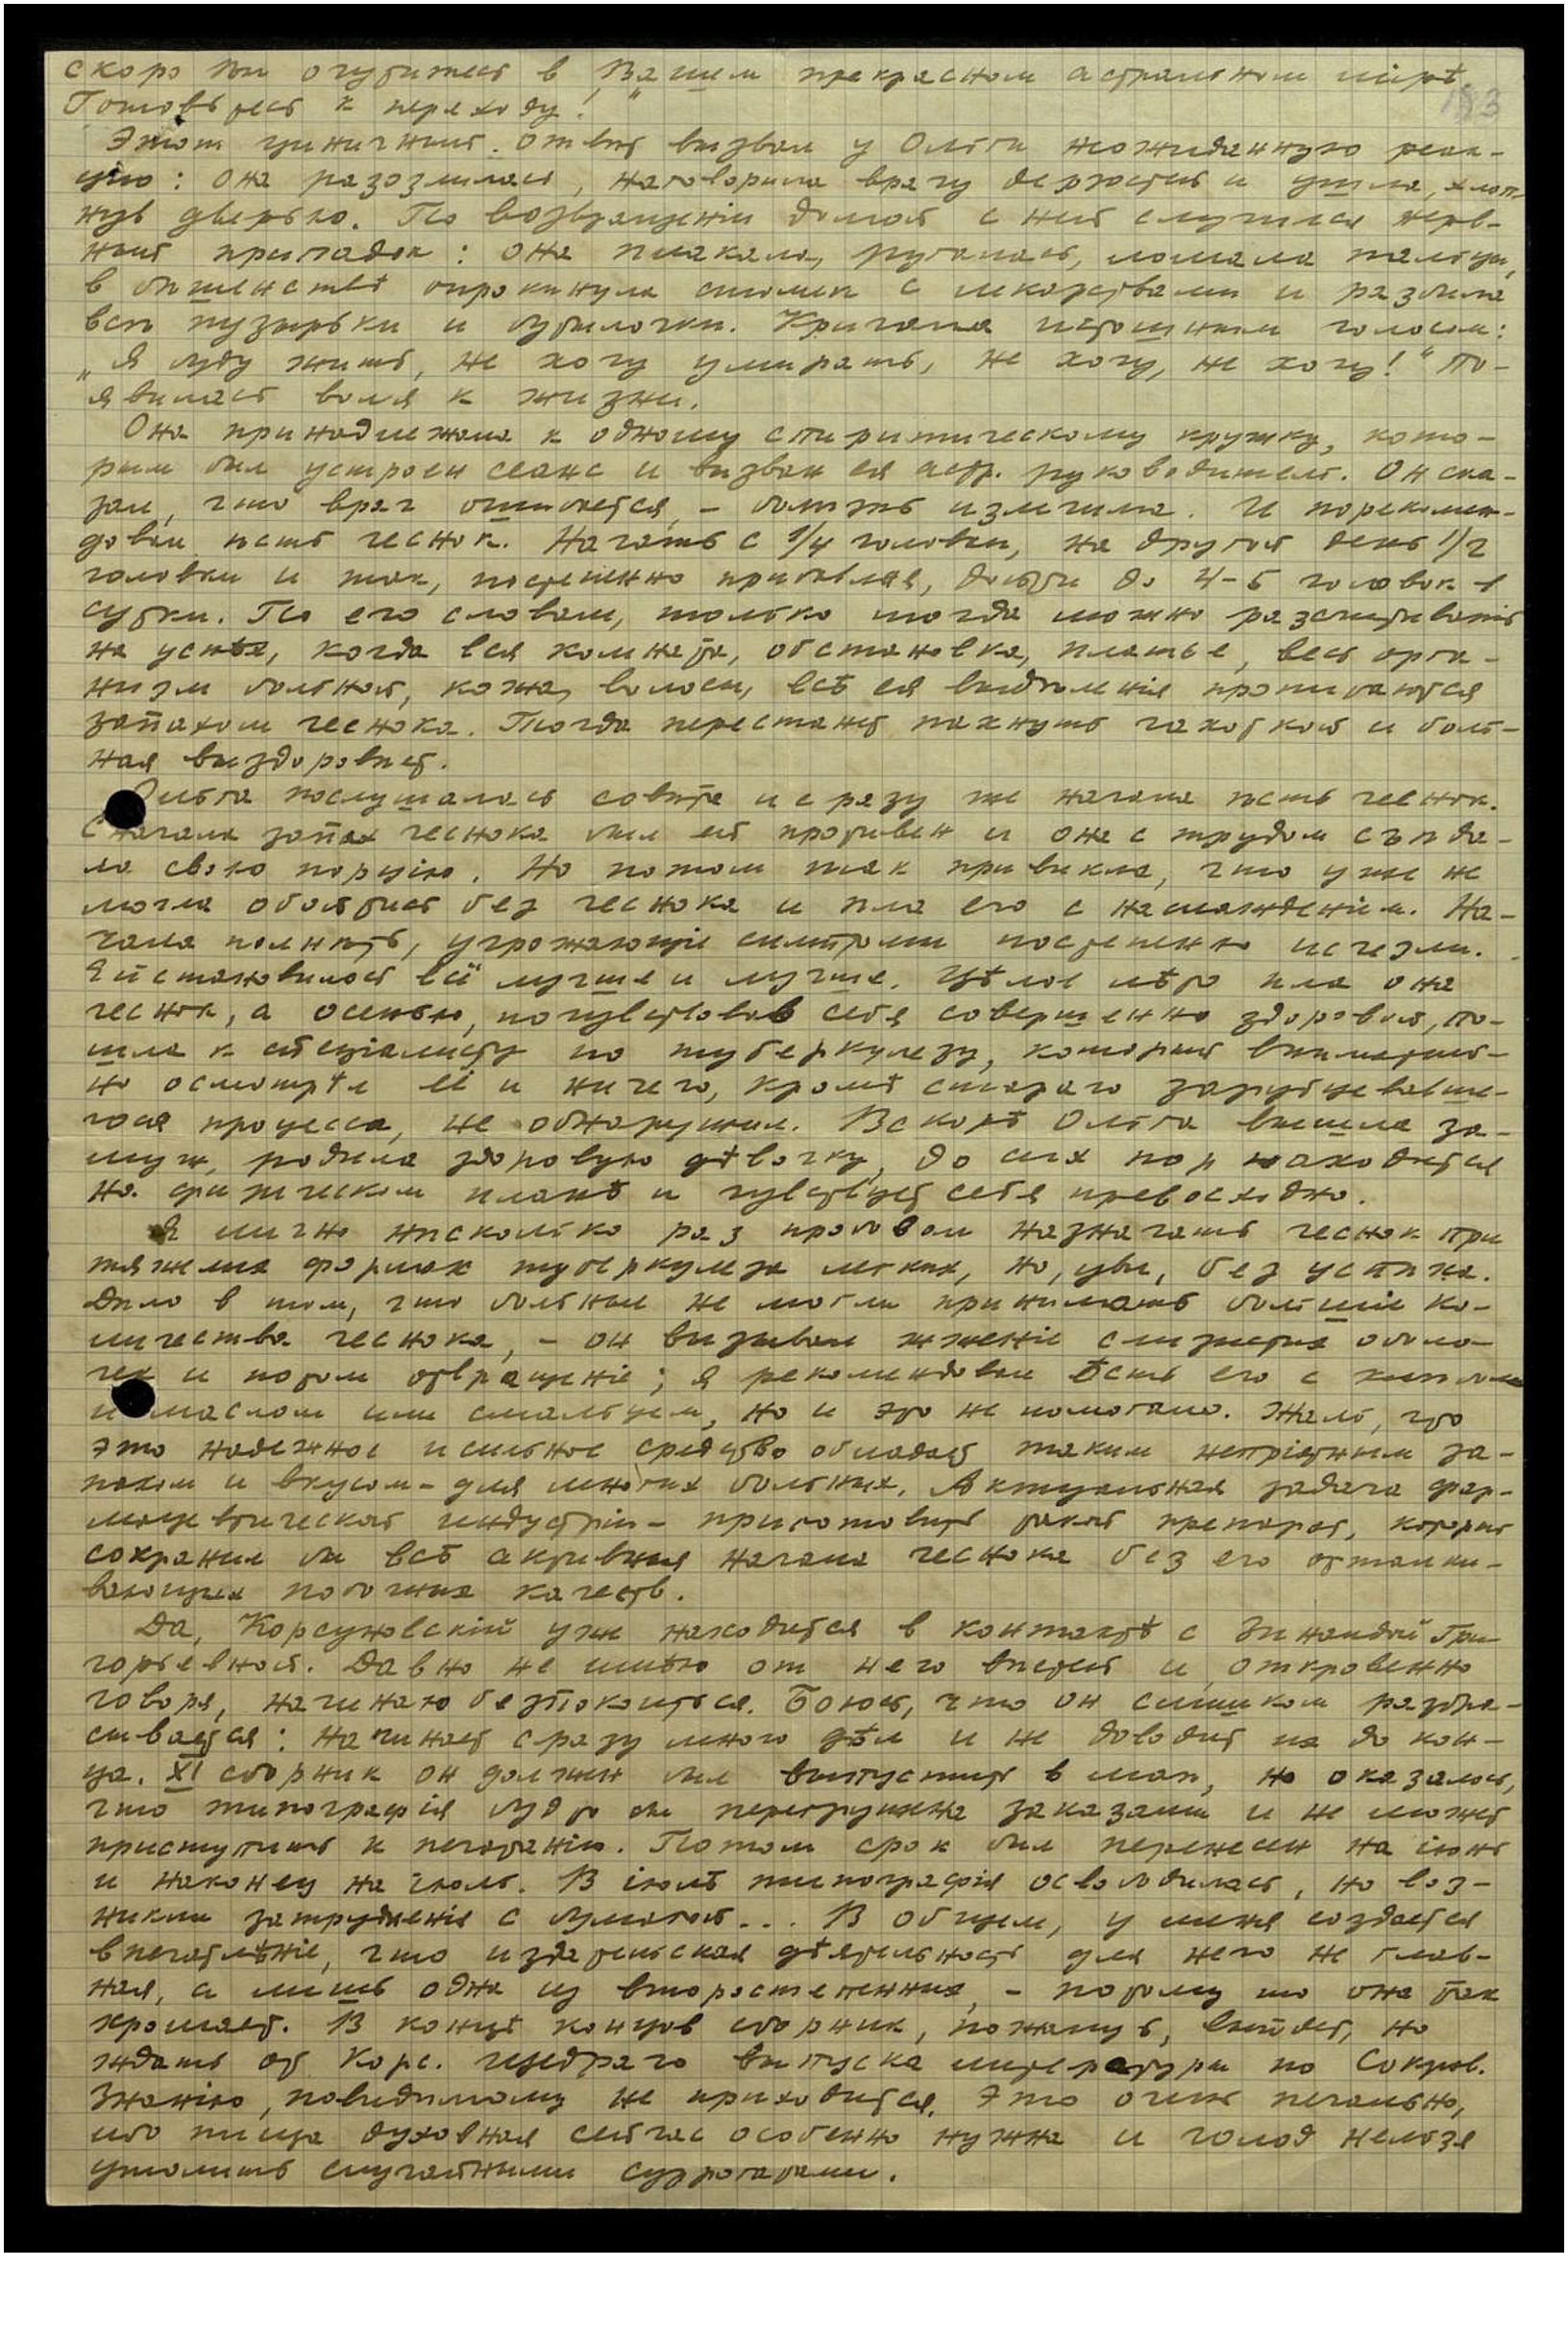 скоро Вы очутитесь в Вашем прекрасном астральном мірѣ.
Готовьтесь к переходу!"
183
Этот циничный отвѣт вызвал у Ольги неожиданную реак-
цію: она разозлилась, наговорила врачу дерзостей и ушла, хлоп-
нув дверью. По возвращеніи домой с ней случился нерв-
ный припадок: она плакала, ругалась, ломала пальцы,
в бѣшенствѣ опрокинула столик с лекарствами и разбила
всѣ пузырьки и бутылочки. Кричала истошным голосом:
„Я буду жить, не хочу умирать, не хочу, не хочу!" По-
явилась воля к жизни.
Она принадлежала к одному спиритическому кружку, кото-
рым был устроен сеанс и вызван ея астр. руководитель. Он ска-
зал, что врач ошибается, – болѣзнь излѣчима. И порекомен-
довал ѣсть чеснок. Начать с 1/4 головки, на другой день 1/2
головки и так, постепенно прибавляя, дойти до 4-5 головок в
сутки. По его словам, только тогда можно разсчитывать
на успѣх, когда вся комната, обстановка, платье, весь орга-
низм больной, кожа, волосы, всѣ ея выдѣленія пропитаются
запахом чеснока. Тогда перестанет пахнуть чахоткой и боль-
ная выздоровѣет.
Ольга послушалась совѣта и сразу же начала ѣсть чеснок.
Сначала запах чеснока был ей противен и она с трудом съѣда-
ла свою порцію. Но потом так привыкла, что уже не
могла обойтись без чеснока и ѣла его с наслажденіем. На-
чала полнѣть, угрожающіе симптомы постепенно исчезли.
Ей становилось всё лучше и лучше. Цѣлое лѣто ѣла она
чеснок, а осенью, почувствовав себя совершенно здоровой, по-
шла к спеціалисту по туберкулезу, который вниматель-
но осмотрѣл её и ничего, кромѣ стараго зарубцевавше-
гося процесса, не обнаружил. Вскорѣ Ольга вышла за-
муж, родила здоровую дѣвочку, до сих пор находится
на физическом планѣ и чувствует себя превосходно.
Я лично нѣсколько раз пробовал назначать чеснок при
тяжелых формах туберкулеза легких, но, увы, без успѣха.
Дѣло в том, что больные не могли принимать большіе ко-
личества чеснока, – он вызывал жженіе слизистых оболо-
чек и потом отвращеніе; я рекомендовал ѣсть его с хлѣбом
и маслом или смальцем, но и это не помогало. Жаль, что
это надежное и сильное средство обладает таким непріятным за-
пахом и вкусом – для многих больных. Актуальная задача фар-
мацевтической индустріи – приготовить такой препарат, который
сохранил бы всѣ активныя начала чеснока без его отталки-
вающих побочных качеств.
Да, Корсуновскій уже находится в контактѣ с Зинаидой Гри-
горьевной. Давно не имѣю от него вѣстей и, откровенно
говоря, начинаю безпокоиться. Боюсь, что он слишком разбра-
сывается: начинает сразу много дѣл и не доводит их до кон-
ца. XI сборник он должен был выпустить в маѣ, но оказалось,
что типографія будто бы перегружена заказами и не может
приступить к печатанію. Потом срок был перенесен на іюнь
и наконец на іюль. В іюлѣ типографія освободилась, но воз-
никли затрудненія с бумагой... В общем, у меня создается
впечатлѣніе, что издательская дѣятельность для него не глав-
ная, а лишь одна из второстепенных, – потому то она так
хромает. В концѣ концов сборник, пожалуй, выйдет, но
ждать от Корс. щедраго выпуска литературы по Сокров.
Знанію, повидимому не приходится. Это очень печально,
ибо пища духовная сейчас особенно нужна и голод нельзя
утолить случайными суррогатами.